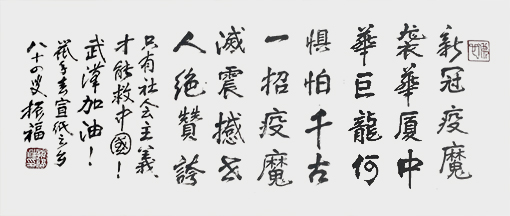 新冠疫魔
袭华厦中
華巨龍何
惧怕千古
一招疫魔
滅震撼世
人绝贊誇
只有社会主義
才能救中國！
武漢加油！
鼠年春宣纸
八十四叟振福